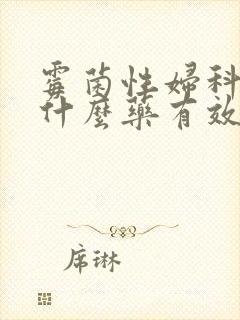 霉菌性婦科
什麼藥有效
席琳